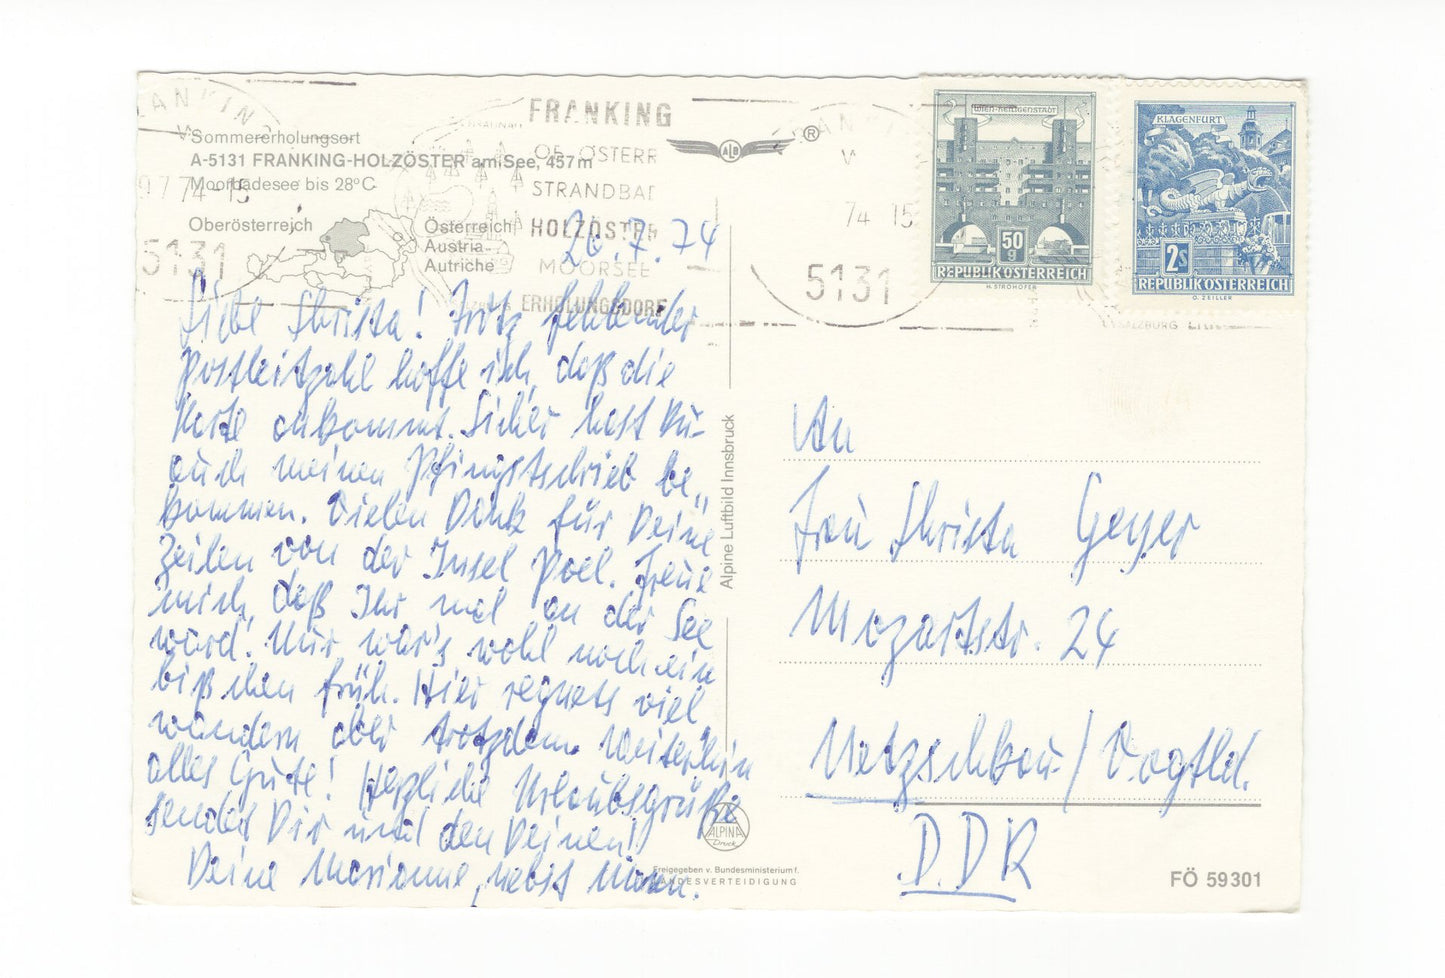 FRANKING
Sommererholungsort
A-5131 FRANKING-HOLZÖSTER am See, 457 m
Moorbadesee bis 28°C
Oberösterreich
Österreich
Austria
Autriche
74-15
5131
FRANKING
OB. ÖSTERR
STRANDBAD
HOLZÖSTER
MOORSEE
ERHOLUNGSDORF
ALB
®
74 15
5131
WIEN-HEILIGENSTADT
50 g
REPUBLIK ÖSTERREICH
H. STROHOFER
KLAGENFURT
2 S
REPUBLIK ÖSTERREICH
O. ZEILLER
SALZBURG
26.7.74
Liebe Christa! Trotz fehlender
Postleitzahl hoffe ich, daß die
Karte ankommt. Sicher hast Du
auch meinen Pfingstschrieb be„
kommen. Vielen Dank für Deine
Zeilen von der Insel Poel. Freue
mich, daß Ihr mal an der See
ward! Nur war's wohl noch ein
bißchen früh. Hier regnets viel
wandern aber trotzdem. Weiterhin
alles Gute! Herzliche Urlaubsgrüße
sendet Dir und den Deinen!
Deine Marianne, nebst
Alpine Luftbild Innsbruck
ALPINA
Druck
Freigegeben v. Bundesministerium f.
LANDESVERTEIDIGUNG
An
Frau Christa Geyer
Mozartstr. 24
Netzschkau/Vogtld.
DDR
FÖ 59301